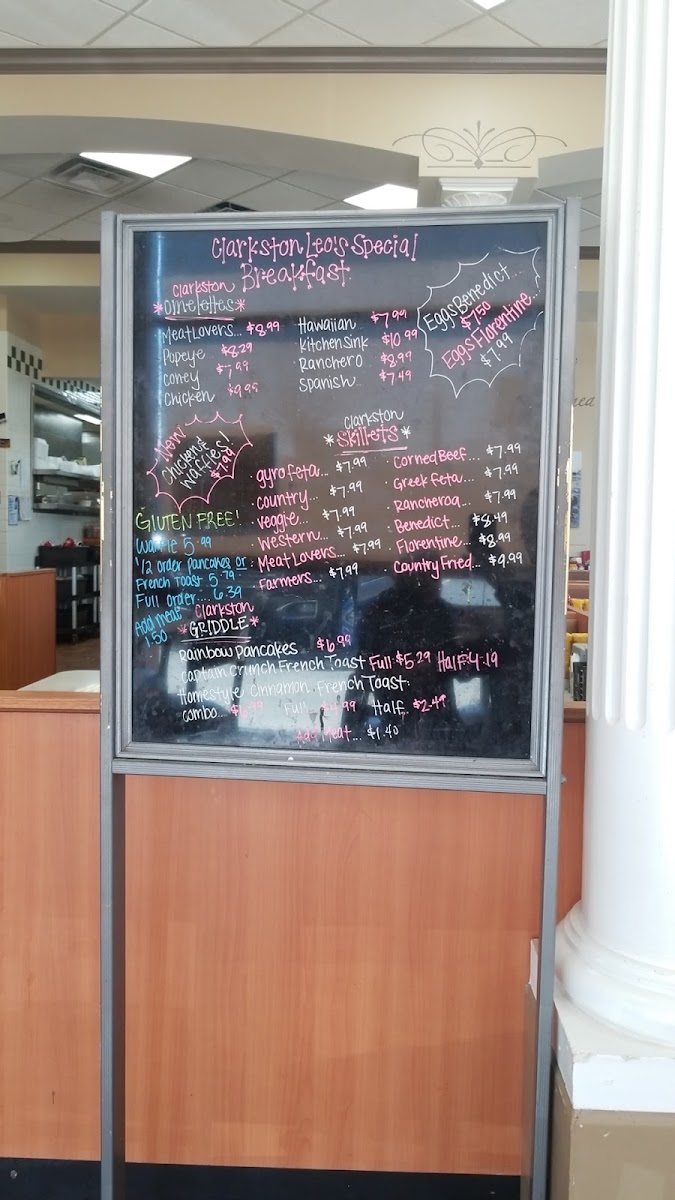 Clarkston Leo's Special
Breakfast
Clarkston
*Omelettes*
Meat Lovers... $8.99
Popeye $8.29
Coney $7.99
Chicken $9.99
Hawaiian $7.99
Kitchen Sink $10.99
Ranchero $8.99
Spanish $7.49
Eggs Benedict...
$7.50
Eggs Florentine...
$7.99
Now
Chicken &
Waffles!
$7.99
Clarkston
*Skillets*
· Gyro Feta... $7.99
· Country... $7.99
· Veggie... $7.99
· Western... $7.99
· Meat Lovers... $7.99
· Farmers... $7.99
· Corned Beef... $7.99
· Greek Feta... $7.99
· Rancheroa... $7.99
· Benedict... $8.49
· Florentine... $8.99
· Country Fried... $9.99
GLUTEN FREE!
Waffle 5.99
1/2 order Pancakes or
French Toast 5.79
Full Order.... 6.39
Add meat
1.50
Clarkston
*GRIDDLE*
Rainbow Pancakes $6.99
Captain Crunch French Toast Full $5.29 Half $4.19
Homestyle Cinnamon French Toast:
Combo.. $6.99 Full.. $4.99 Half.. $2.49
Add Meat... $1.40